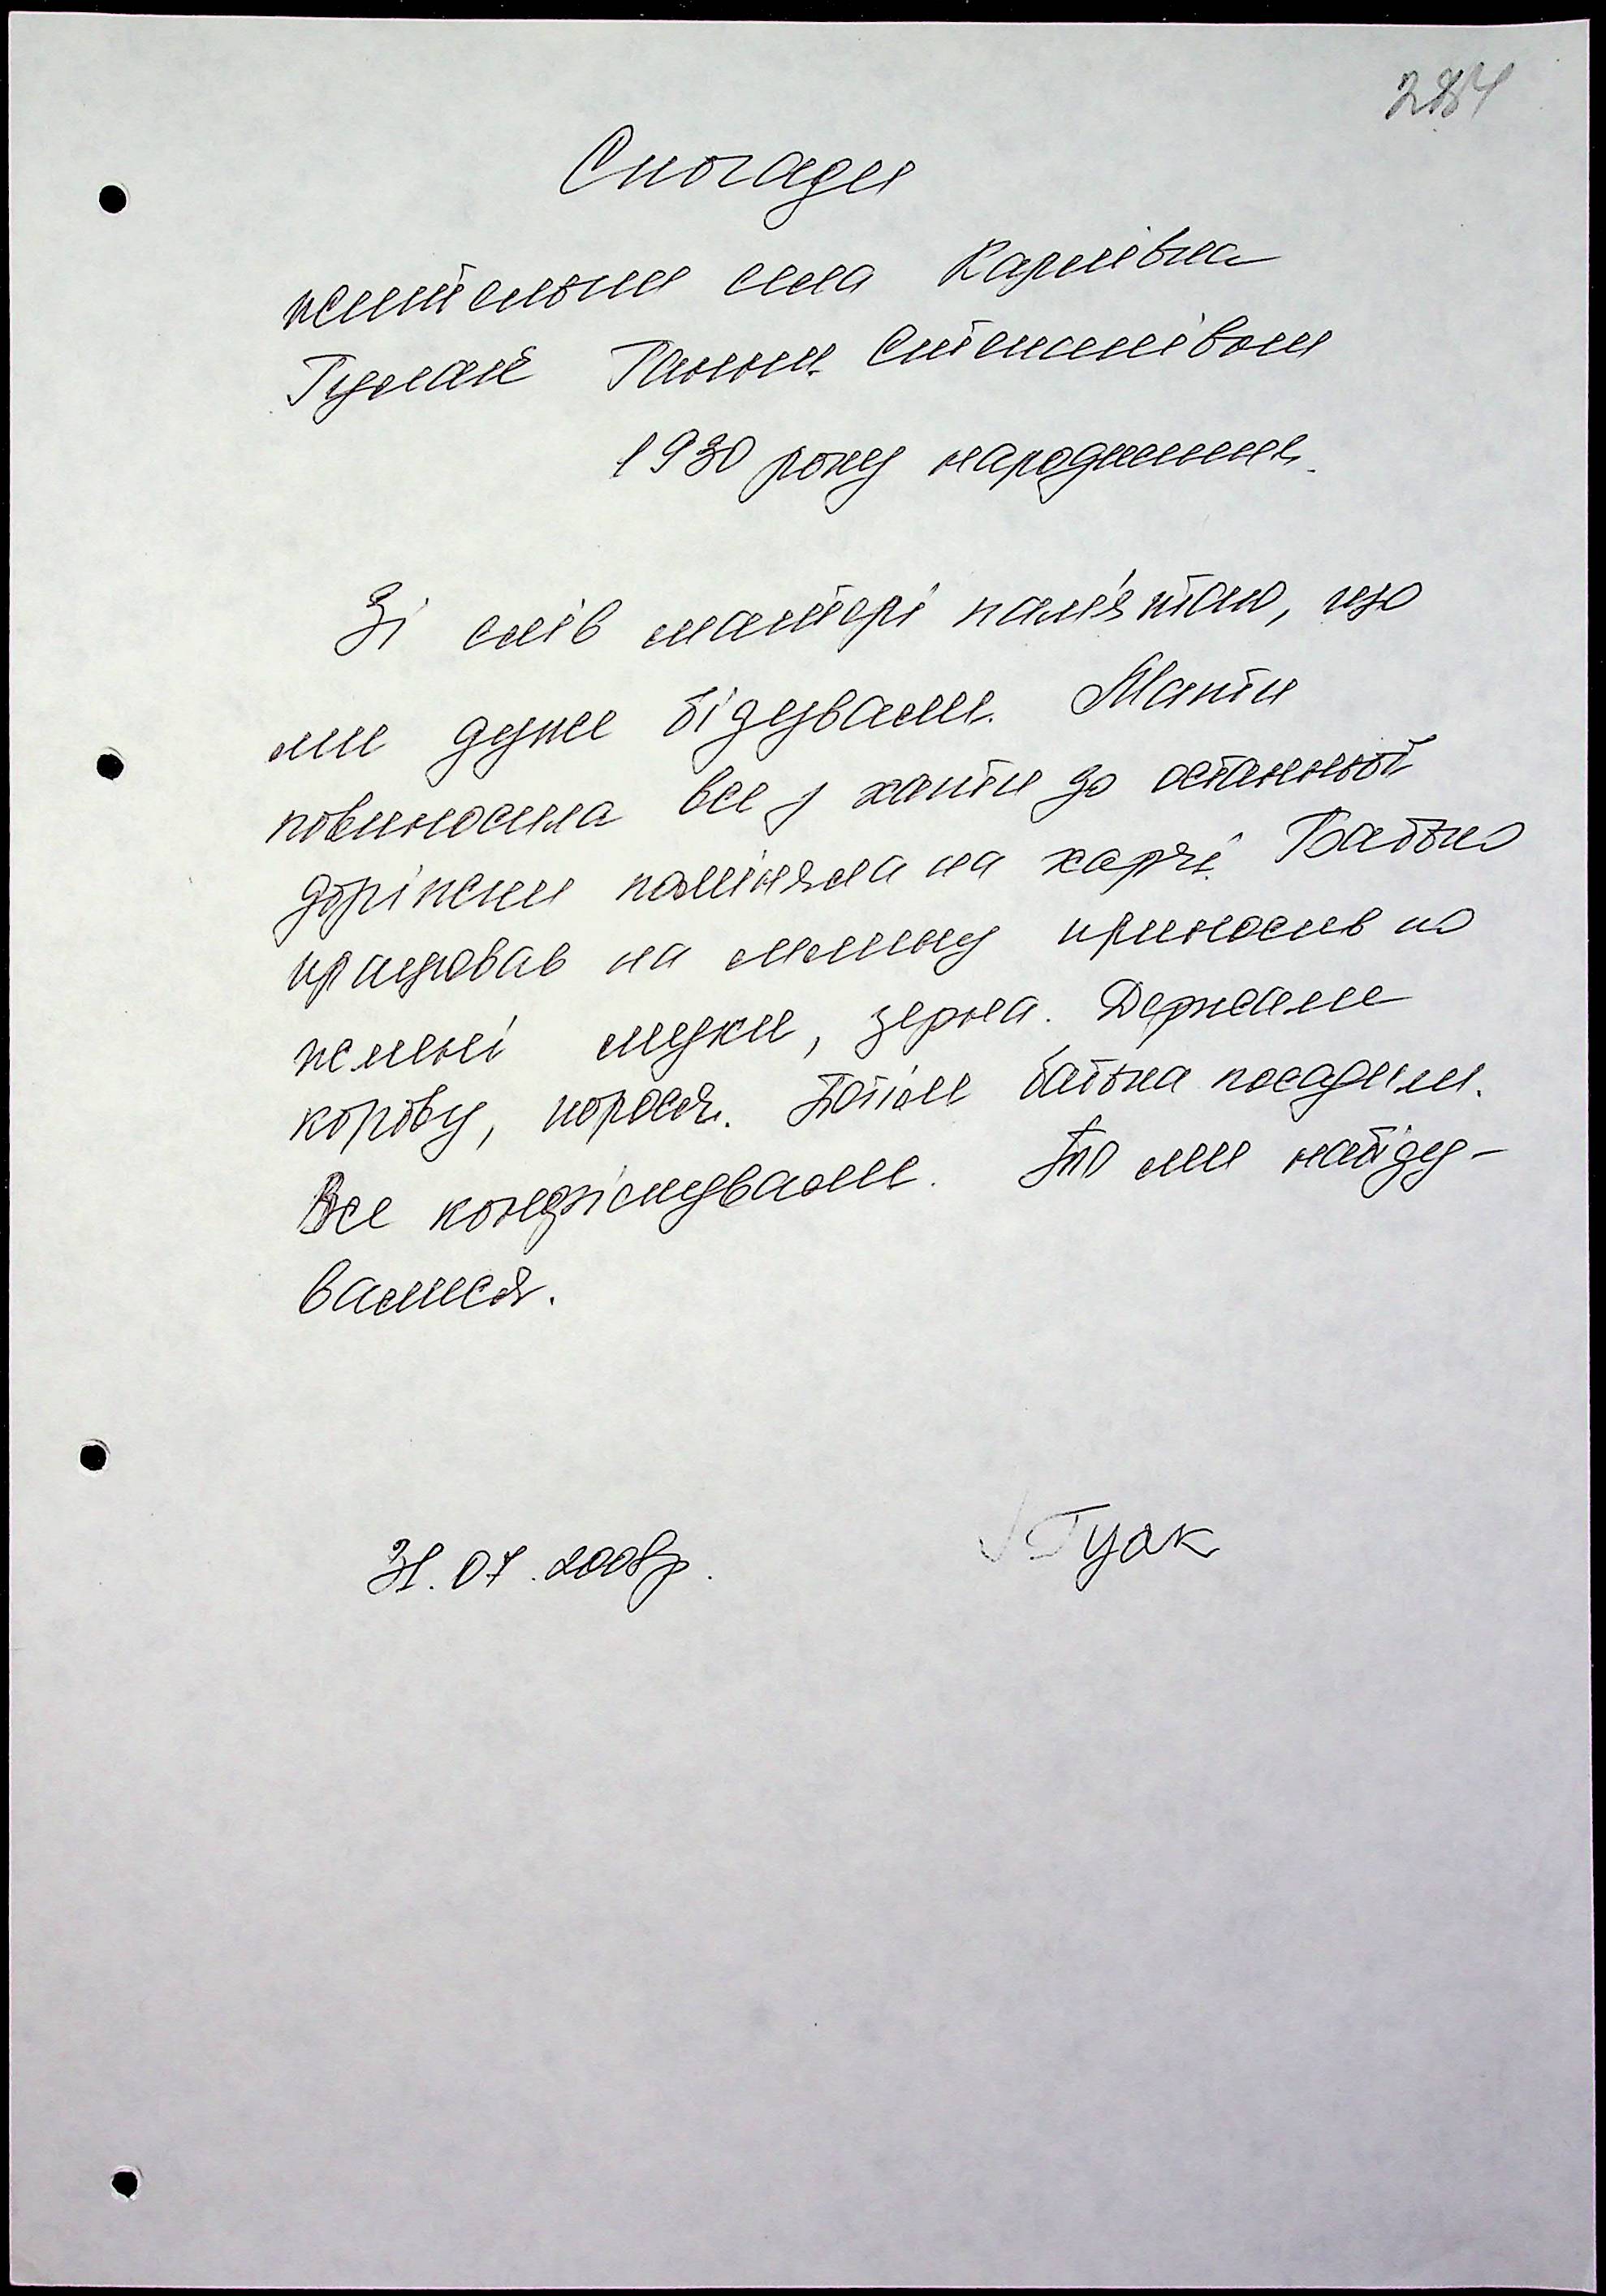 Спогади
жительки села Карлівка
Ганни Степанівни
1930 року народження.
Зі слів матері пам'ятаю, що
ми дуже бідували. Мати
повиносила все з хати до останньої
доріжки поміняла на харчі. Батько
працював на млину приносив по
жмені муки, зерна. Держали
корову, порося. Потім батька посадили.
Все конфіскували. То ми набіду-
валися.
31.07.2008р.